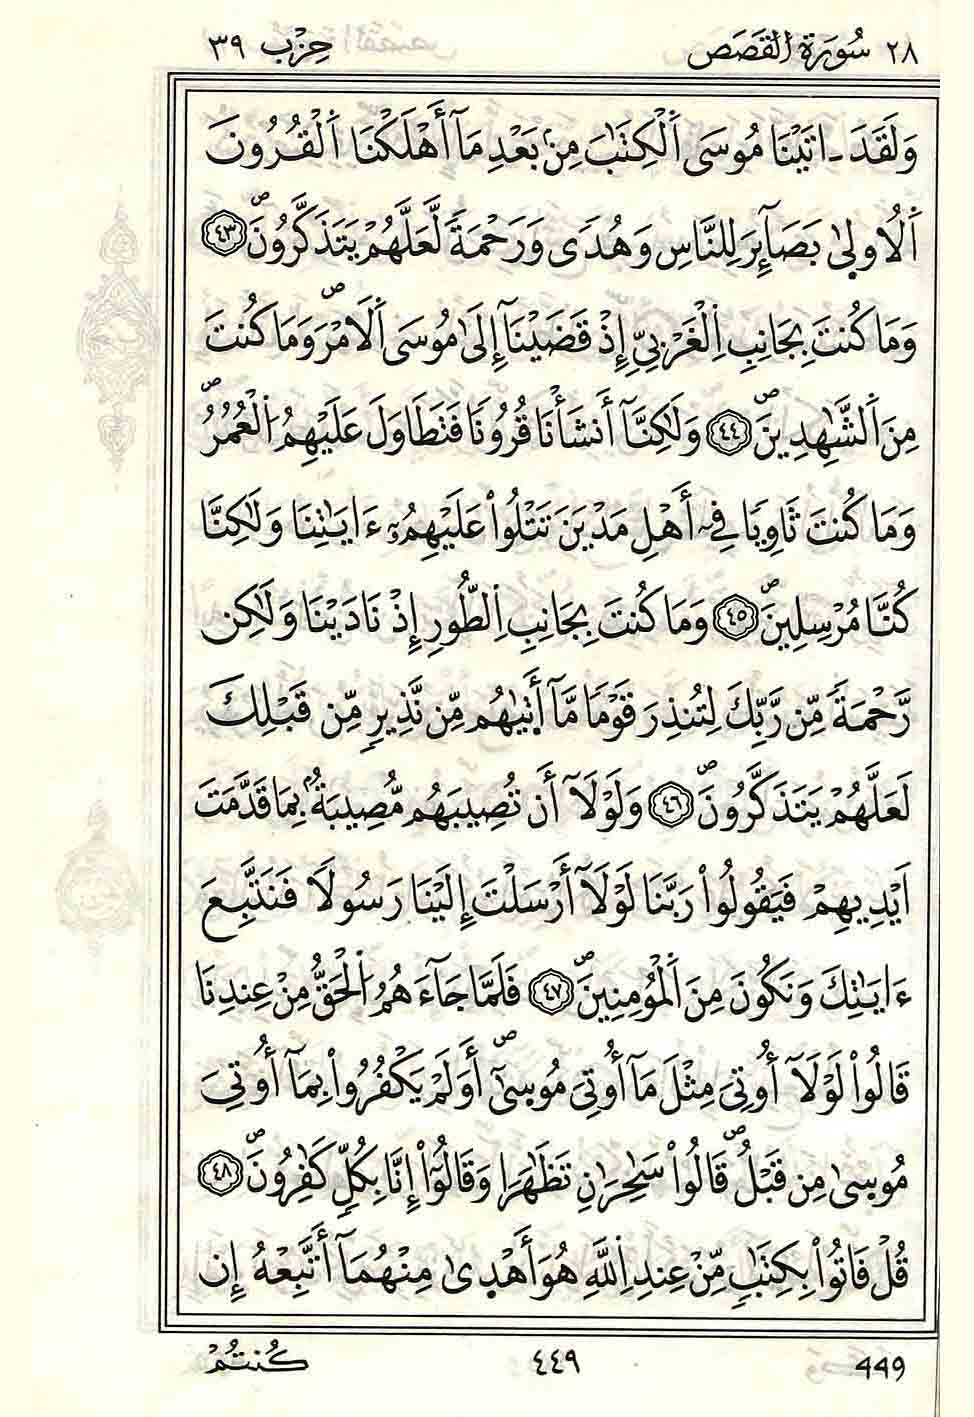 ٢٨ سُورَةُ الْقَصَصِ حِزْب ٣٩
وَلَقَدَ ـ اتَيْنَا مُوسَى اَ۬لْكِتَٰبَ مِنۢ بَعْدِ مَآ أَهْلَكْنَا اَ۬لْقُرُونَ
اَ۬لُاول۪ىٰ بَصَآئِرَ لِلنَّاسِ وَهُدىً وَرَحْمَةً لَّعَلَّهُمْ يَتَذَكَّرُونَۖ ٤٣
وَمَا كُنتَ بِجَانِبِ اِ۬لْغَرْبِيِّ إِذْ قَضَيْنَآ إِلَىٰ مُوسَى اَ۬لَامْرَۖ وَمَا كُنتَ
مِنَ اَ۬لشَّٰهِدِينَۖ ٤٤ وَلَٰكِنَّآ أَنشَأْنَا قُرُوناً فَتَطَاوَلَ عَلَيْهِمُ اُ۬لْعُمُرُۖ
وَمَا كُنتَ ثَاوِياً فِےٓ أَهْلِ مَدْيَنَ تَتْلُواْ عَلَيْهِمُۥٓ ءَايَٰتِنَا وَلَٰكِنَّا
كُنَّا مُرْسِلِينَۖ ٤٥ وَمَا كُنتَ بِجَانِبِ اِ۬لطُّورِ إِذْ نَادَيْنَا وَلَٰكِن
رَّحْمَةً مِّن رَّبِّكَ لِتُنذِرَ قَوْماً مَّآ أَت۪يٰهُم مِّن نَّذِيرٍ مِّن قَبْلِكَ
لَعَلَّهُمْ يَتَذَكَّرُونَۖ ٤٦ وَلَوْلَآ أَن تُصِيبَهُم مُّصِيبَةُۢ بِمَا قَدَّمَتَ
اَيْدِيهِمْ فَيَقُولُواْ رَبَّنَا لَوْلَآ أَرْسَلْتَ إِلَيْنَا رَسُولاً فَنَتَّبِعَ
ءَايَٰتِكَ وَنَكُونَ مِنَ اَ۬لْمُؤْمِنِينَۖ ٤٧ فَلَمَّا جَآءَهُمُ اُ۬لْحَقُّ مِنْ عِندِنَا
قَالُواْ لَوْلَآ أُوتِيَ مِثْلَ مَآ أُوتِيَ مُوس۪ىٰٓۖ أَوَلَمْ يَكْفُرُواْ بِمَآ أُوتِيَ
مُوس۪ىٰ مِن قَبْلُۖ قَالُواْ سَٰحِرَٰنِ تَظَّٰهَرَا وَقَالُوٓاْ إِنَّا بِكُلّٖ كَٰفِرُونَۖ ٤٨
قُلْ فَاتُواْ بِكِتَٰبٍ مِّنْ عِندِ اِ۬للَّهِ هُوَ أَهْد۪ىٰ مِنْهُمَآ أَتَّبِعْهُ إِن
كُنتُمْ ٤٤٩ 449